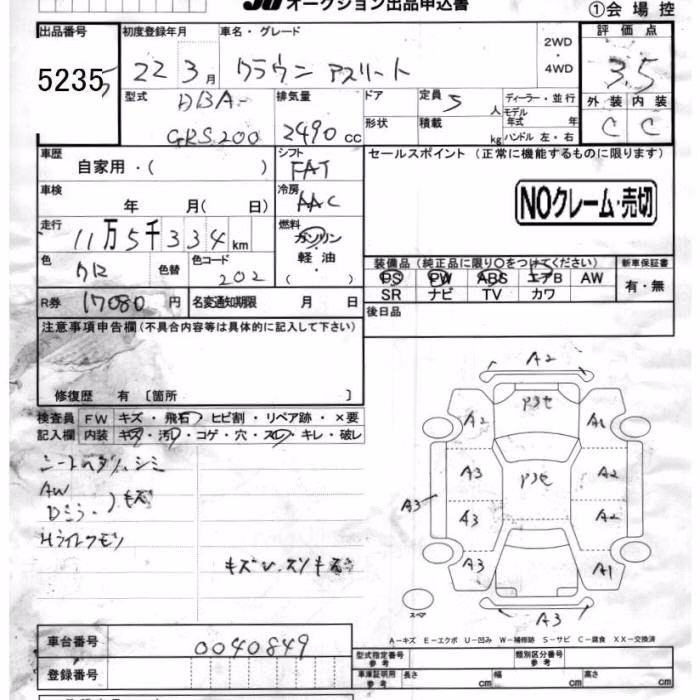 JU オークション出品申込書
①会場控
出品番号
5235
初度登録年月
22 3月
車名・グレード
クラウン アスリート
2WD
・
4WD
評価点
3.5
外装 内装
C C
型式
DBA-
GRS200
排気量
2490 cc
ドア
形状
定員 5 人
積載 kg
ディーラー・並行
モデル年式 年
ハンドル 左・右
車歴
自家用・( )
シフト
FAT
セールスポイント (正常に機能するものに限ります)
NOクレーム・売切
車検
年 月( 日)
冷房
AAC
走行
11万5千334km
燃料
ガソリン
軽・油
( )
色
クロ
色替
色コード
202
装備品 (純正品に限り○をつけてください)
新車保証書
PS PW ABS エアB AW
SR ナビ TV カワ
有・無
R券 17080円
名変通知期限 月 日
後日品
注意事項申告欄(不具合内容等は具体的に記入して下さい)
修復歴 有 〔箇所 〕
検査員
記入欄
FW キズ・飛石・ヒビ割・リペア跡・×要
内装 キズ・汚れ・コゲ・穴・スレ・キレ・破レ
シートヘタリ、シミ
AW
Dミラー
)キズ
Hライトクモリ
A2
A2
A1
A3
A2
A3
A3
A2
A3
A1
A3
スペア
A-キズ E-エクボ U-凹み W-補修跡 S-サビ C-腐食 XX-交換済
車台番号
0040849
登録番号
型式指定番号
参考
類別区分番号
参考
車庫証明用
参考
長さ cm
幅 cm
高さ cm